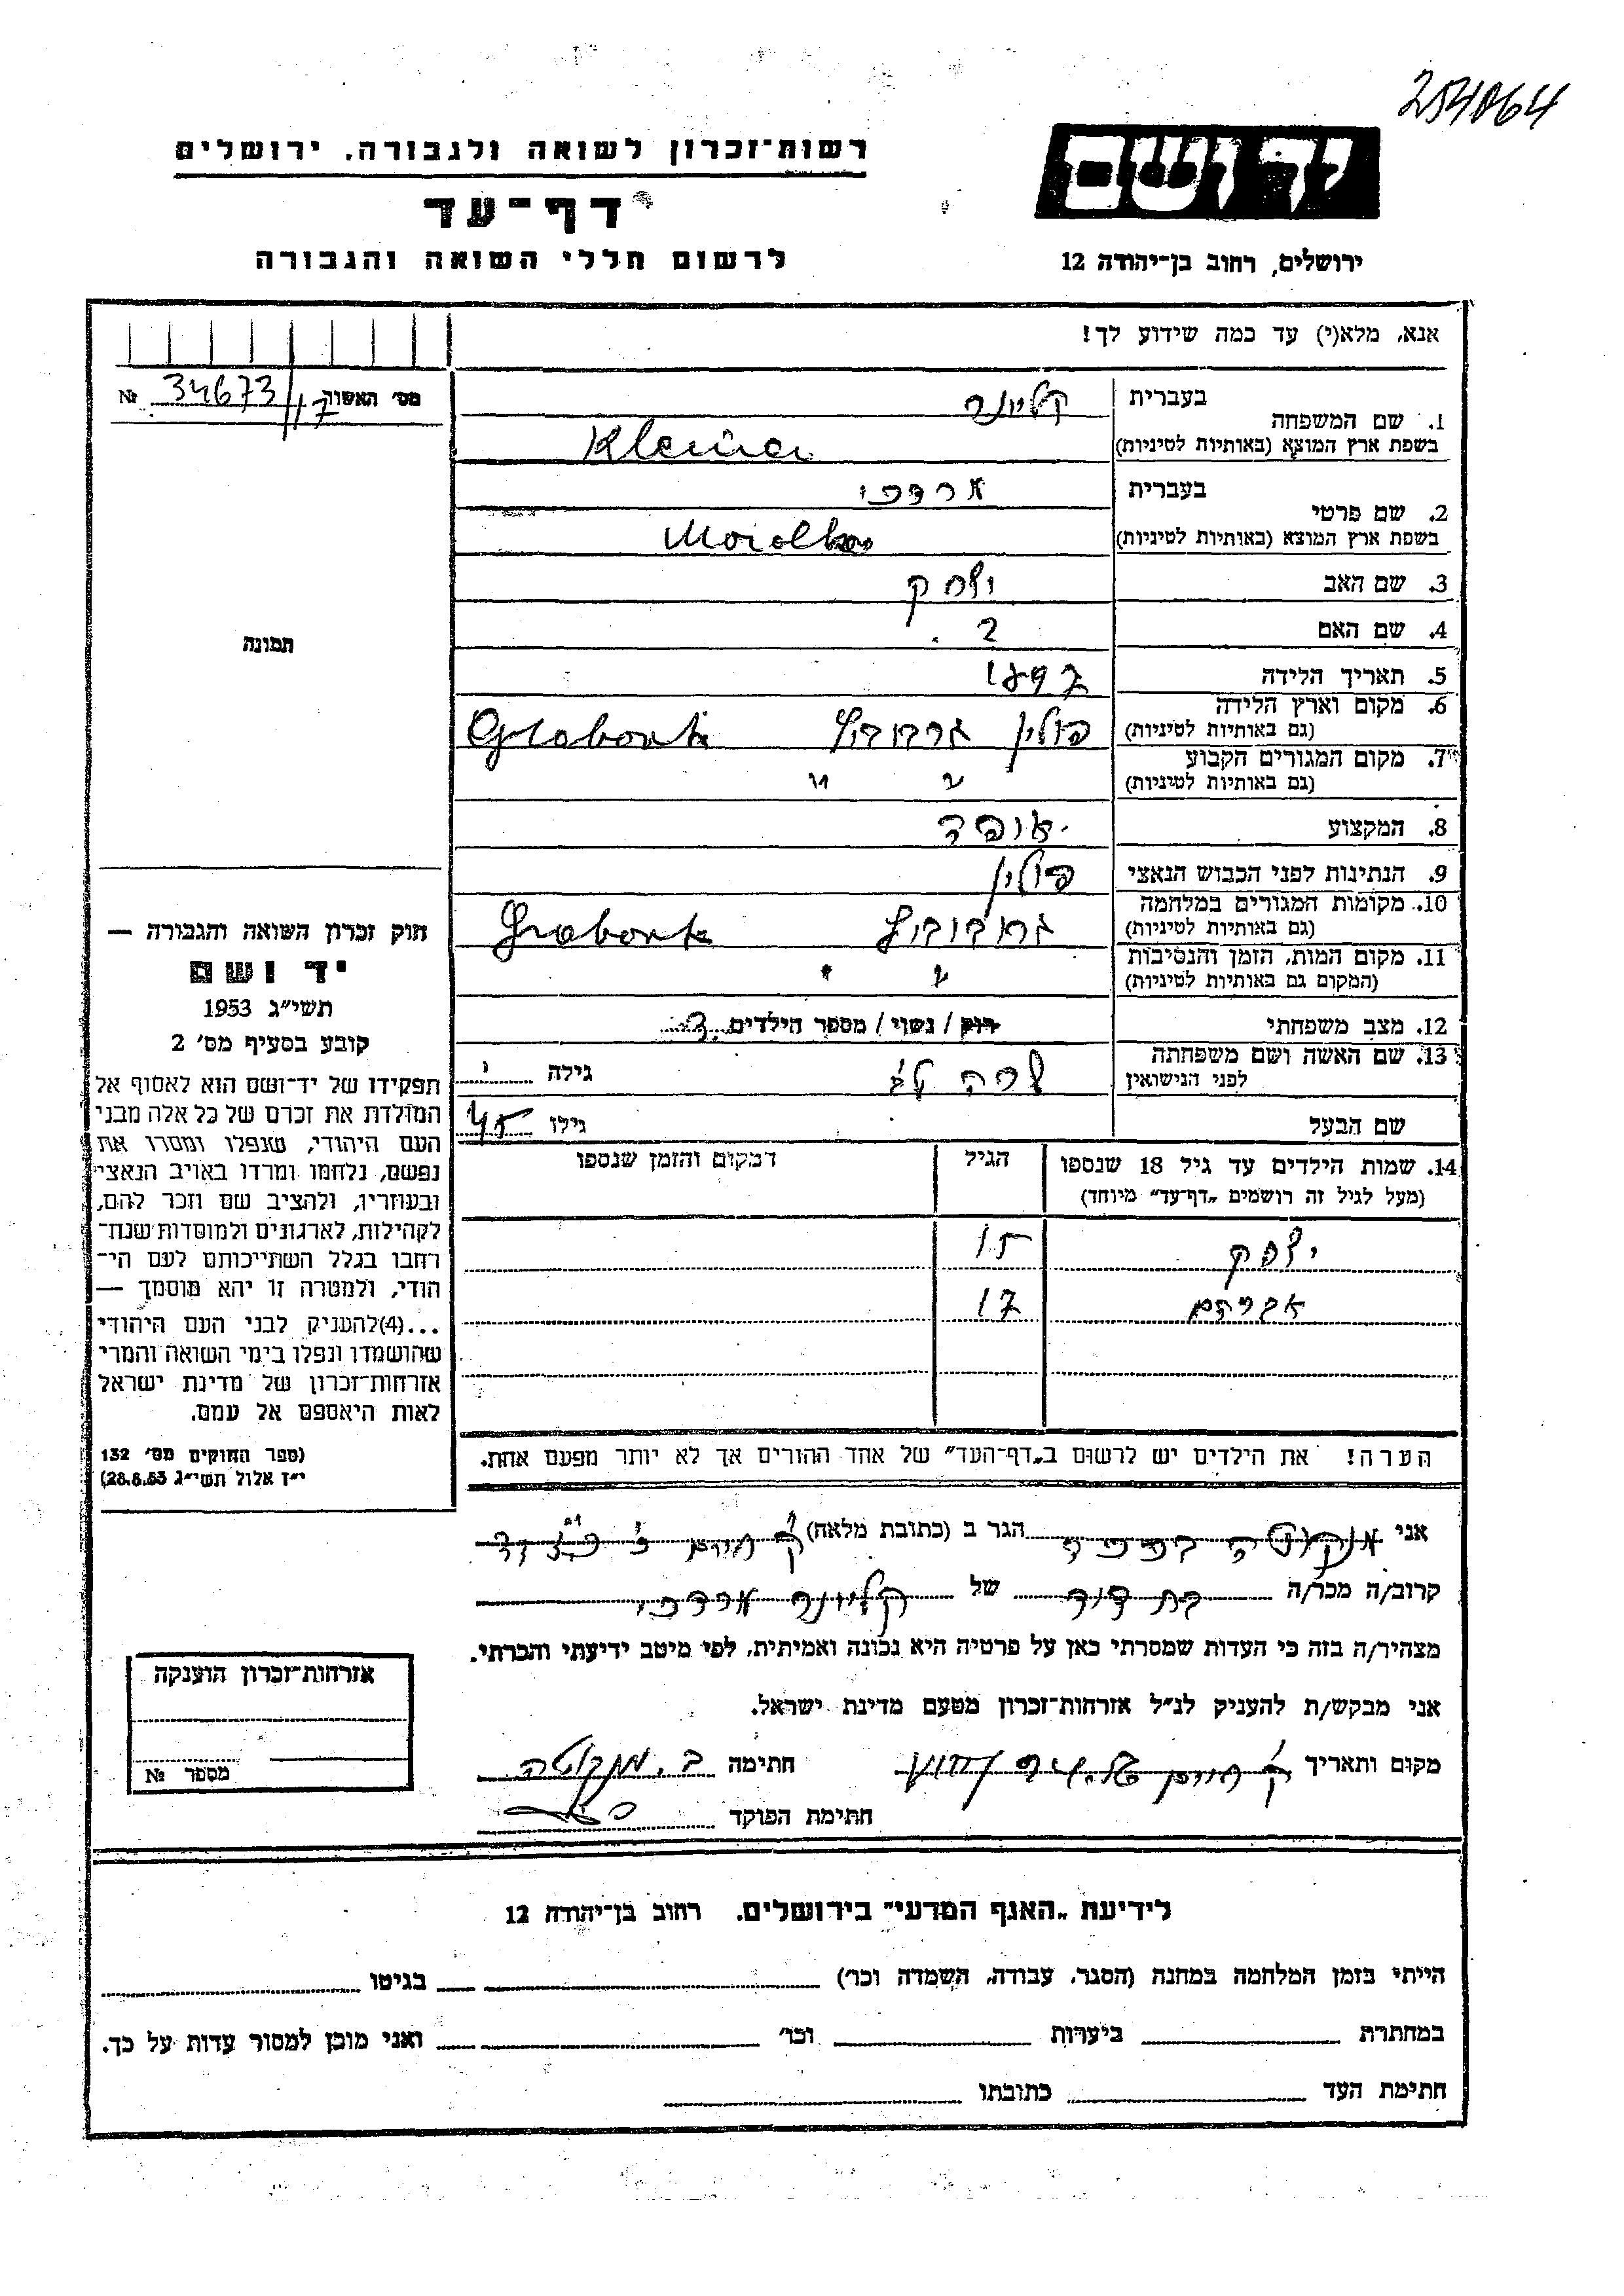 254864
רשות־זכרון לשואה ולגבורה, ירושלים
יד ושם
דף־עד
לרשום חללי השואה והגבורה
ירושלים, רחוב בן־יהודה 12
אנא, מלא(י) עד כמה שידוע לך!
מס׳ האשור 17/34673 №
1. שם המשפחה
בעברית קליינר
בשפת ארץ המוצא (באותיות לטיניות) Kleiner
2. שם פרטי
בעברית מרדכי
בשפת ארץ המוצא (באותיות לטיניות)
3. שם האב יצחק
4. שם האם ?
5. תאריך הלידה 1897
6. מקום וארץ הלידה
(גם באותיות לטיניות) פולין
7. מקום המגורים הקבוע
(גם באותיות לטיניות) " "
8. המקצוע
9. הנתינות לפני הכבוש הנאצי פולין
10. מקומות המגורים במלחמה
(גם באותיות לטיניות)
11. מקום המות, הזמן והנסיבות
(המקום גם באותיות לטיניות) " "
12. מצב משפחתי רוק / נשוי / מספר הילדים
13. שם האשה ושם משפחתה
לפני הנישואין שרה גילה
שם הבעל גילו 45
14. שמות הילדים עד גיל 18 שנספו הגיל המקום והזמן שנספו
(מעל לגיל זה רושמים „דף־עד״ מיוחד)
יצחק 15
אברהם 17
הערה! את הילדים יש לרשום ב„דף־העד״ של אחד ההורים אך לא יותר מפעם אחת.
תמונה
חוק זכרון השואה והגבורה —
יד ושם
תשי״ג 1953
קובע בסעיף מס׳ 2
תפקידו של יד־ושם הוא לאסוף אל
המולדת את זכרם של כל אלה מבני
העם היהודי, שנפלו ומסרו את
נפשם, נלחמו ומרדו באויב הנאצי
ובעוזריו, ולהציב שם וזכר להם,
לקהילות, לארגונים ולמוסדות שנח־
רבו בגלל השתייכותם לעם הי־
הודי, ולמטרה זו יהא מוסמך —
...(4)להעניק לבני העם היהודי
שהושמדו ונפלו בימי השואה והמרי
אזרחות־זכרון של מדינת ישראל
לאות היאספם אל עמם.
(ספר החוקים מס׳ 132
י״ז אלול תשי״ג 28.8.53)
אני הגר ב (כתובת מלאה) ק׳ חיים
קרוב/ה מכר/ה בת דוד של קליינר מרדכי
מצהיר/ה בזה כי העדות שמסרתי כאן על פרטיה היא נכונה ואמיתית, לפי מיטב ידיעתי והכרתי.
אני מבקש/ת להעניק לנ״ל אזרחות־זכרון מטעם מדינת ישראל.
מקום ותאריך ק׳ חיים חתימה
חתימת הפוקד
אזרחות־זכרון הוענקה
מספר №
לידיעת „האגף המדעי״ בירושלים, רחוב בן־יהודה 12
הייתי בזמן המלחמה במחנה (הסגר, עבודה, השמדה וכו׳) בגיטו
במחתרת ביערות וכו׳ ואני מוכן למסור עדות על כך.
חתימת העד כתובתו